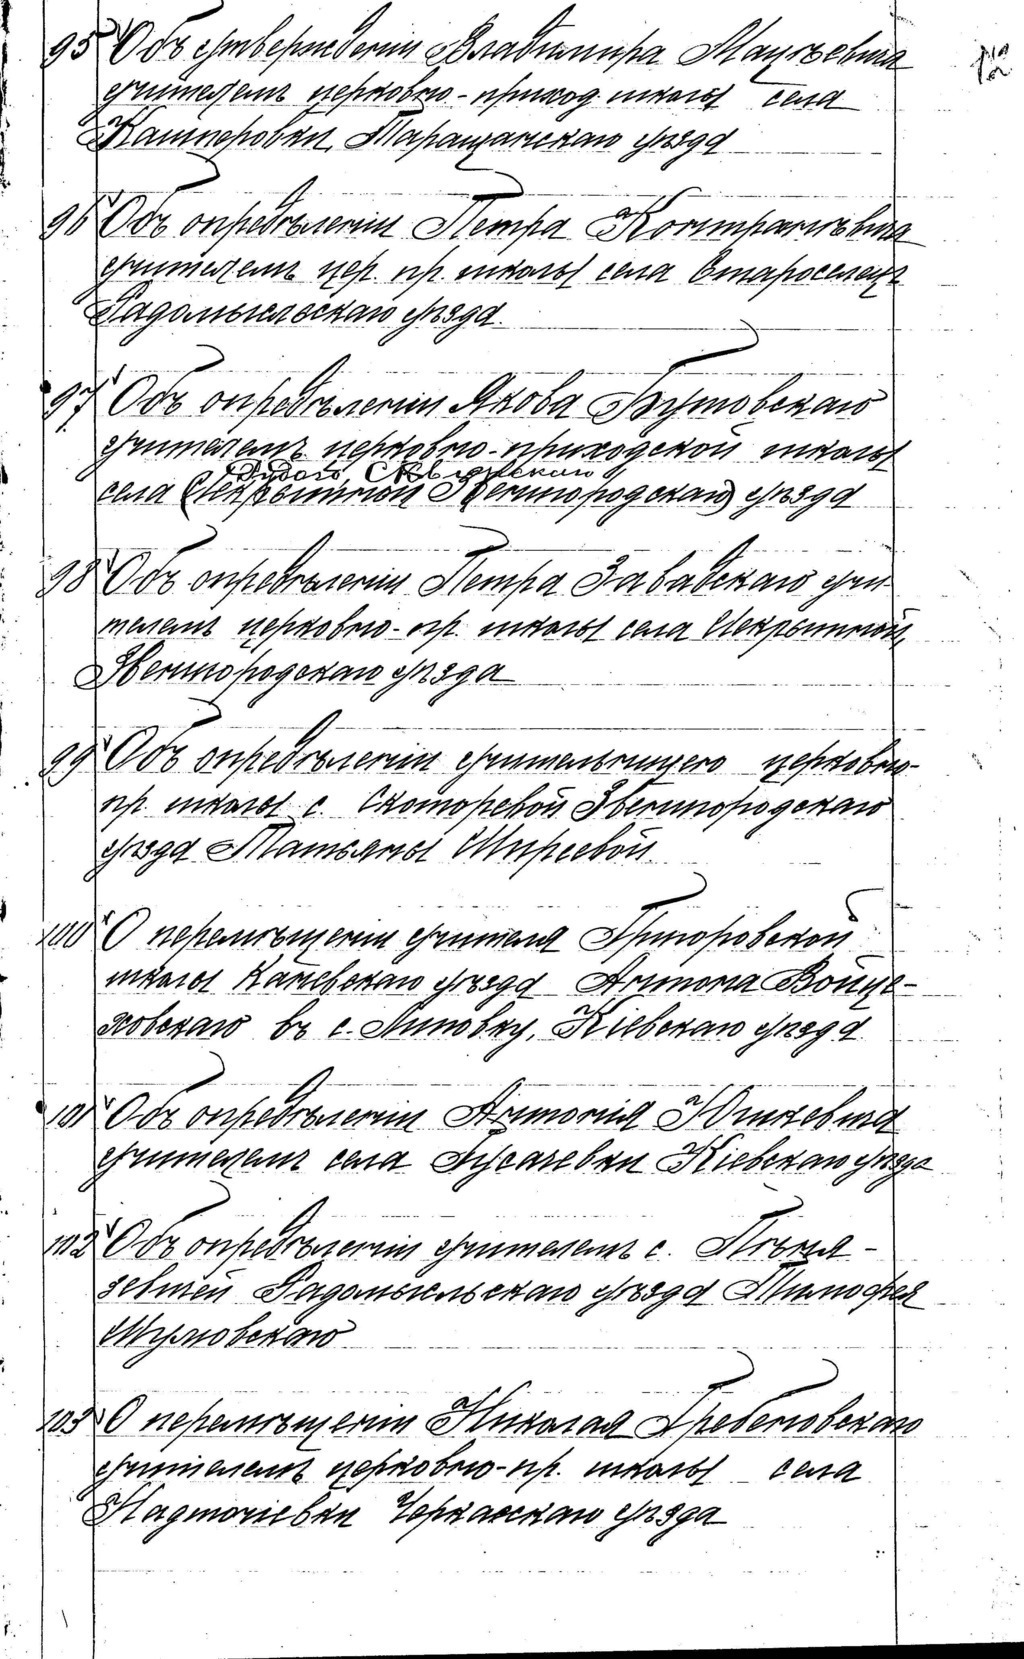 95 Объ утвержденіи Владиміра Мацѣевича
учителемъ церковно-приход школы села
Кашперовки, Таращанскаго уѣзда
96 Объ опредѣленіи Петра Контраневича
учителемъ цер. пр. школы села Староселец
Радомысльскаго уѣзда
97 Объ опредѣленіи Якова Бутовскаго
учителемъ церковно-приходской школы
Сквирскаго
села (Искрынной Звенигородскаго) уѣзда
98 Объ опредѣленіи Петра Завадскаго учи-
телемъ церковно-пр. школы села Искрынной,
Звенигородскаго уѣзда
99 Объ опредѣленіи учительницею церковно-
пр. школы с. Скоморевой Звенигородскаго
уѣзда Татьяны Ширеевой
100 О перемѣщеніи учителя Григоровской
школы Каневскаго уѣзда Антона Войце-
ховскаго въ с. Липовку, Кіевскаго уѣзда
101 Объ опредѣленіи Антонія Юшкевича
учителемъ села Гусачевки Кіевскаго уѣзда
102 Объ опредѣленіи учителемъ с.
Радомысльскаго уѣзда Тимофея
Шумовскаго
103 О перемѣщеніи Николая Гребеновскаго
учителемъ церковно-пр. школы села
Надточіевки Черкасскаго уѣзда